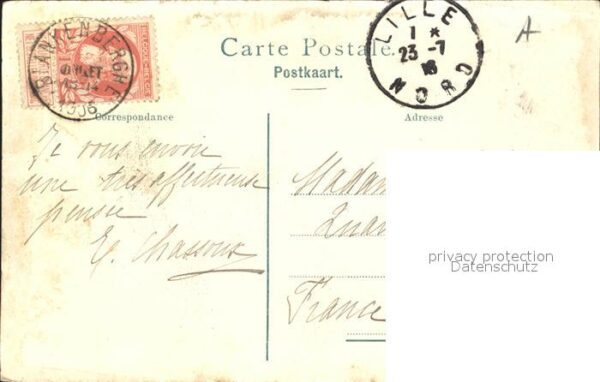 BLANKENBERGHE
1906
LILLE
1 *
23 - 7
NORD
A
Carte Postale.
Postkaart.
Correspondance
Adresse
Je vous envoie
une très affectueuse
pensée
E. Chassoux
Madam
France
privacy protection
Datenschutz